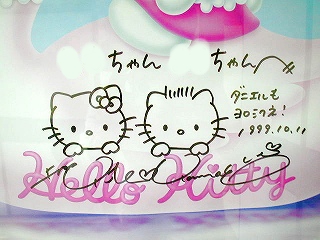 ちゃん ちゃん
ダニエルも
ヨロシクネ!
1999.10.11
Hello Kitty